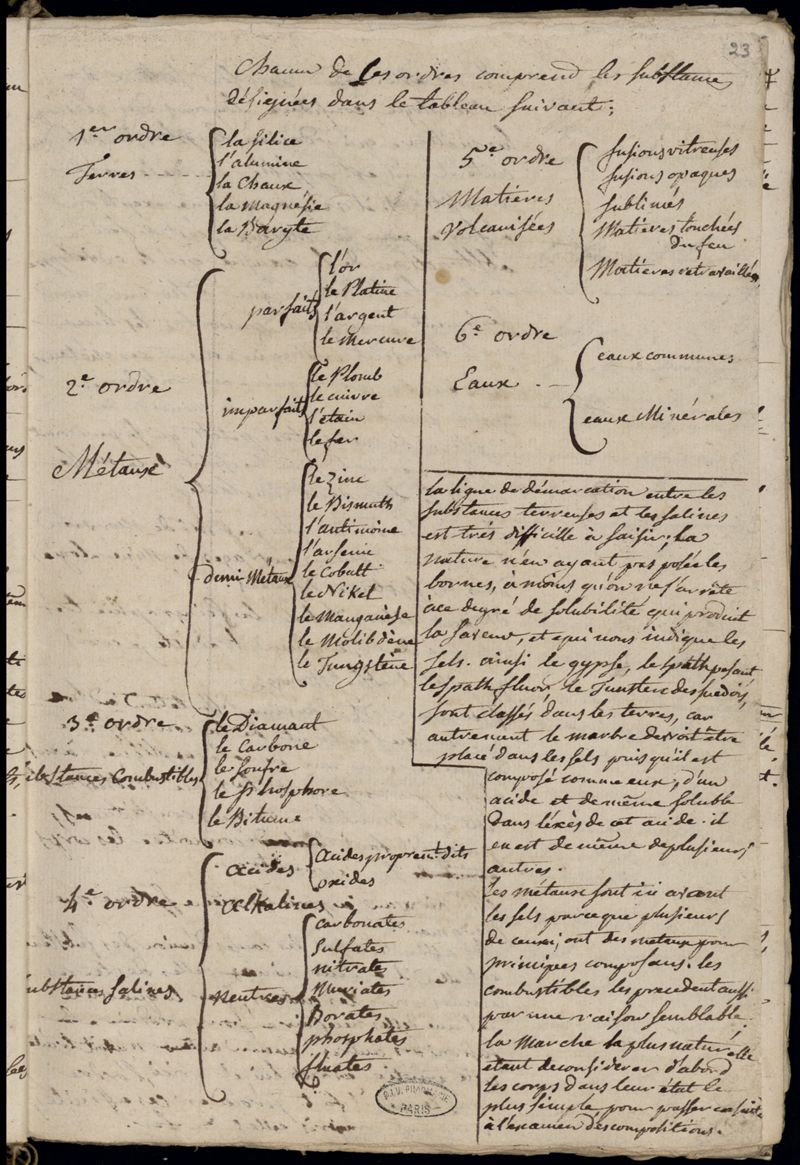 23
Chacun de ces ordres comprend les substances
désignées dans le tableau suivant:
1er ordre
Terres
la silice
l'alumine
la Chaux
la Magnésie
la Baryte
2e ordre
Métaux
parfaits
l'or
le Platine
l'argent
le Mercure
imparfaits
le Plomb
le cuivre
l'étain
le fer
demi-Métaux
le Zinc
le Bismuth
l'antimoine
l'arsenic
le Cobalt
le Nikel
le Manganèse
le Molibdène
le Tungstène
3e ordre
substances combustibles
le Diamant
le Carbone
le soufre
le Phosphore
le Bitume
4e ordre
substances salines
acides
acides proprement dits
oxides
alkalines
neutres
carbonates
sulfates
nitrates
Muriates
Borates
phosphates
fluates
5e ordre
Matières
Volcanisées
fusions vitreuses
fusions opaques
sublimés
Matières touchées
du feu
Matières retravaillées
6e ordre
Eaux
eaux communes
eaux Minérales
la ligne de démarcation entre les
substances terreuses et les salines
est très difficille à saisir; la
nature n'en ayant pas posée les
bornes, à moins qu'on ne s'arrête
à ce degré de solubilité qui produit
la saveur, et qui nous indique les
sels. ainsi le gypse, le spath pesant
le spath fluor le Tunsten des suédois,
sont classés dans les terres, car
autrement le marbre devroit être
placé dans les sels puis qu'il est
composé comme eux, d'un
acide et de même soluble
dans l'éxès de cet acide. il
en est de même de plusieurs
autres.
Les métaux sont ici avant
les sels parceque plusieurs
de ceux ci, ont des metaux pour
principes composans. les
combustibles les precedent aussi
par une raison semblable.
la Marche la plus naturelle
étant de considérer d'abord
les corps dans leur état le
plus simple pour passer ensuite
à l'examen des compositions.
PHARMACIE
PARIS